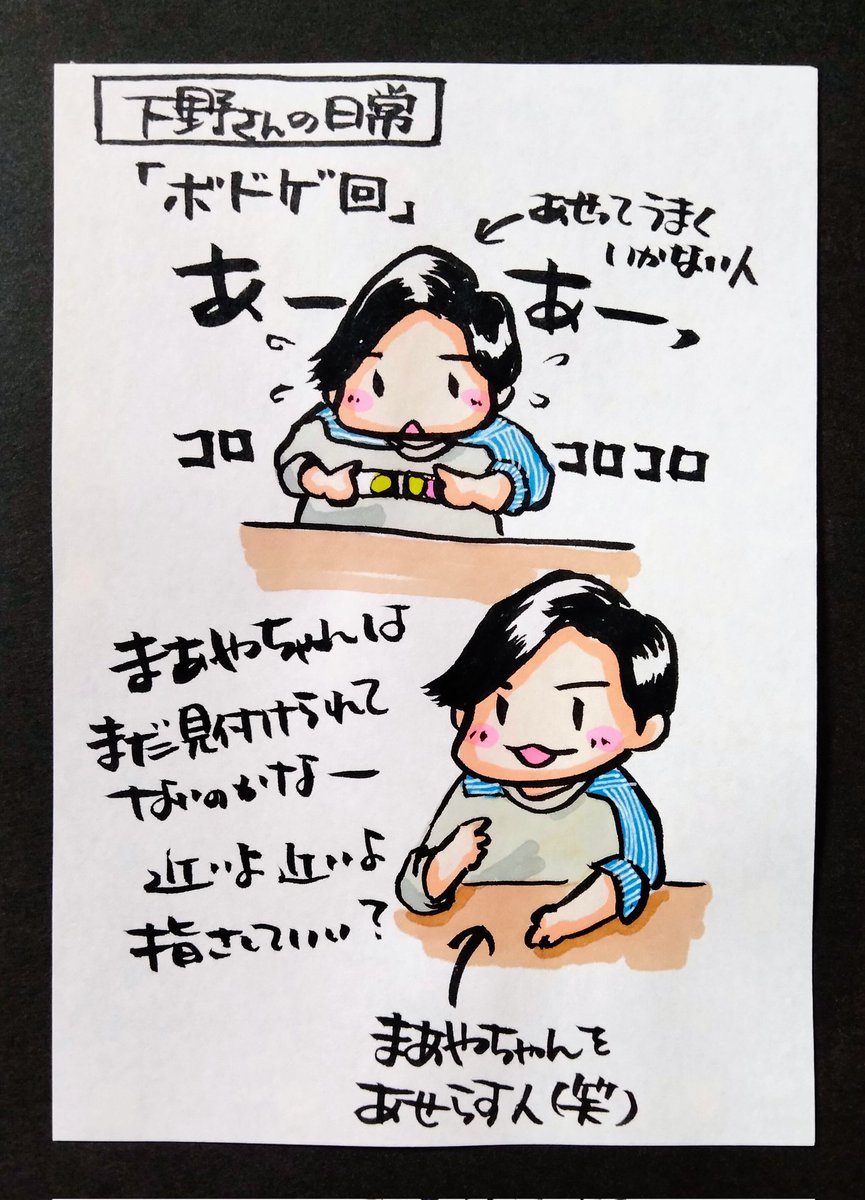 下野さんの日常
「ボドゲ回」
あせってうまく
いかない人
あー あーっ
コロ コロコロ
まあやちゃんは
まだ見付けられて
ないのかなー
近いよ近いよ
指さしていい?
まあやちゃんを
あせらす人(笑)